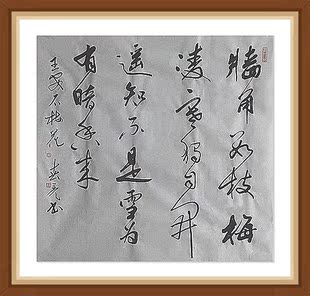 墙角数枝梅
凌寒独自开
遥知不是雪为
有暗香来
王安石梅花